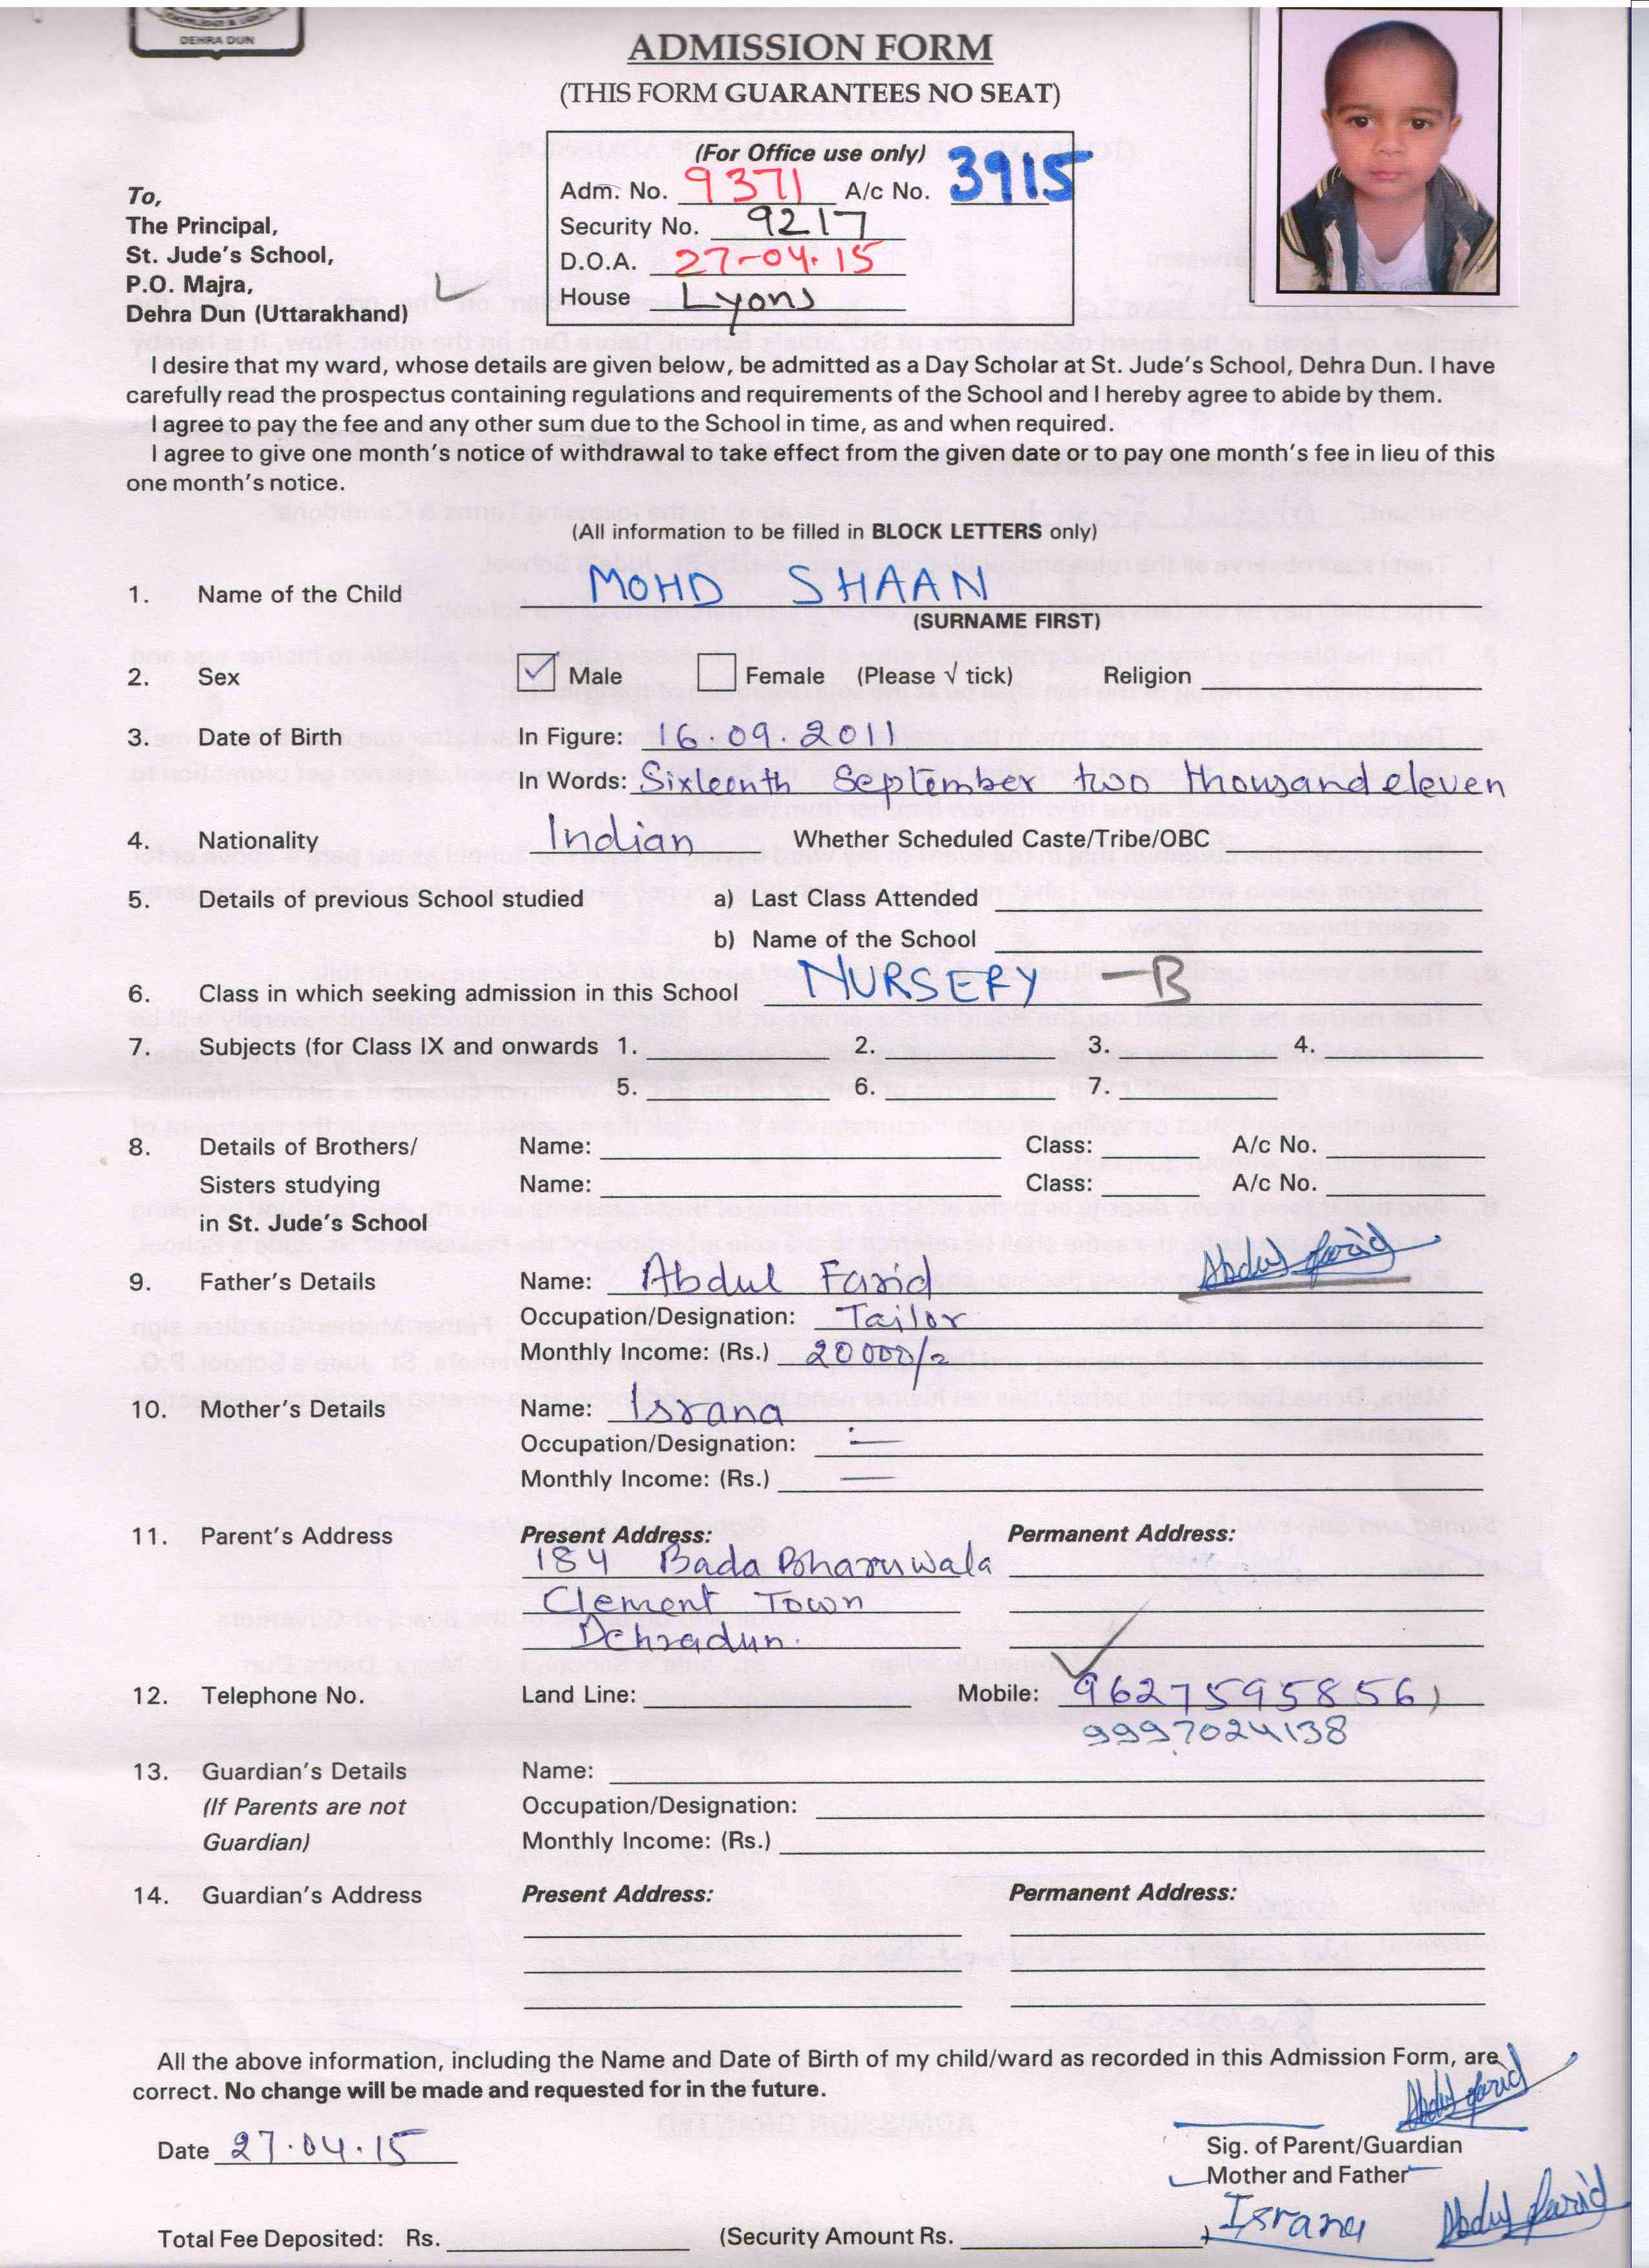 DEHRA DUN
ADMISSION FORM
(THIS FORM GUARANTEES NO SEAT)
(For Office use only)
Adm. No. 9371 A/c No. 3915
Security No. 9217
D.O.A. 27-04.15
House Lyons
To,
The Principal,
St. Jude's School,
P.O. Majra,
Dehra Dun (Uttarakhand)
I desire that my ward, whose details are given below, be admitted as a Day Scholar at St. Jude's School, Dehra Dun. I have
carefully read the prospectus containing regulations and requirements of the School and I hereby agree to abide by them.
I agree to pay the fee and any other sum due to the School in time, as and when required.
I agree to give one month's notice of withdrawal to take effect from the given date or to pay one month's fee in lieu of this
one month's notice.
(All information to be filled in BLOCK LETTERS only)
1. Name of the Child MOHD SHAAN
(SURNAME FIRST)
2. Sex ✓ Male Female (Please √ tick) Religion
3. Date of Birth In Figure: 16.09.2011
In Words: Sixleenth September two thousand eleven
4. Nationality Indian Whether Scheduled Caste/Tribe/OBC
5. Details of previous School studied a) Last Class Attended
b) Name of the School
6. Class in which seeking admission in this School NURSERY - B
7. Subjects (for Class IX and onwards 1. 2. 3. 4.
5. 6. 7.
8. Details of Brothers/ Name: Class: A/c No.
Sisters studying Name: Class: A/c No.
in St. Jude's School
9. Father's Details Name: Abdul Farid Abdul farid
Occupation/Designation: Tailor
Monthly Income: (Rs.) 20000/=
10. Mother's Details Name: Israna
Occupation/Designation: —
Monthly Income: (Rs.) —
11. Parent's Address Present Address: Permanent Address:
184 Bada Bharuwala
Clement Town
Dehradun.
12. Telephone No. Land Line: Mobile: 9627595856,
9997024138
13. Guardian's Details Name:
(If Parents are not Occupation/Designation:
Guardian) Monthly Income: (Rs.)
14. Guardian's Address Present Address: Permanent Address:
All the above information, including the Name and Date of Birth of my child/ward as recorded in this Admission Form, are
correct. No change will be made and requested for in the future.
Abdul farid
Date 27.04.15 Sig. of Parent/Guardian
Mother and Father
Israna Abdul farid
Total Fee Deposited: Rs. (Security Amount Rs. )